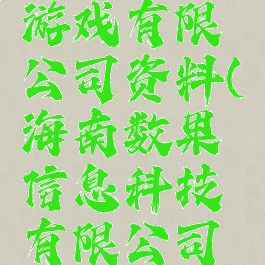 游戏有限
公司资料(
海南数果
信息科技
有限公司